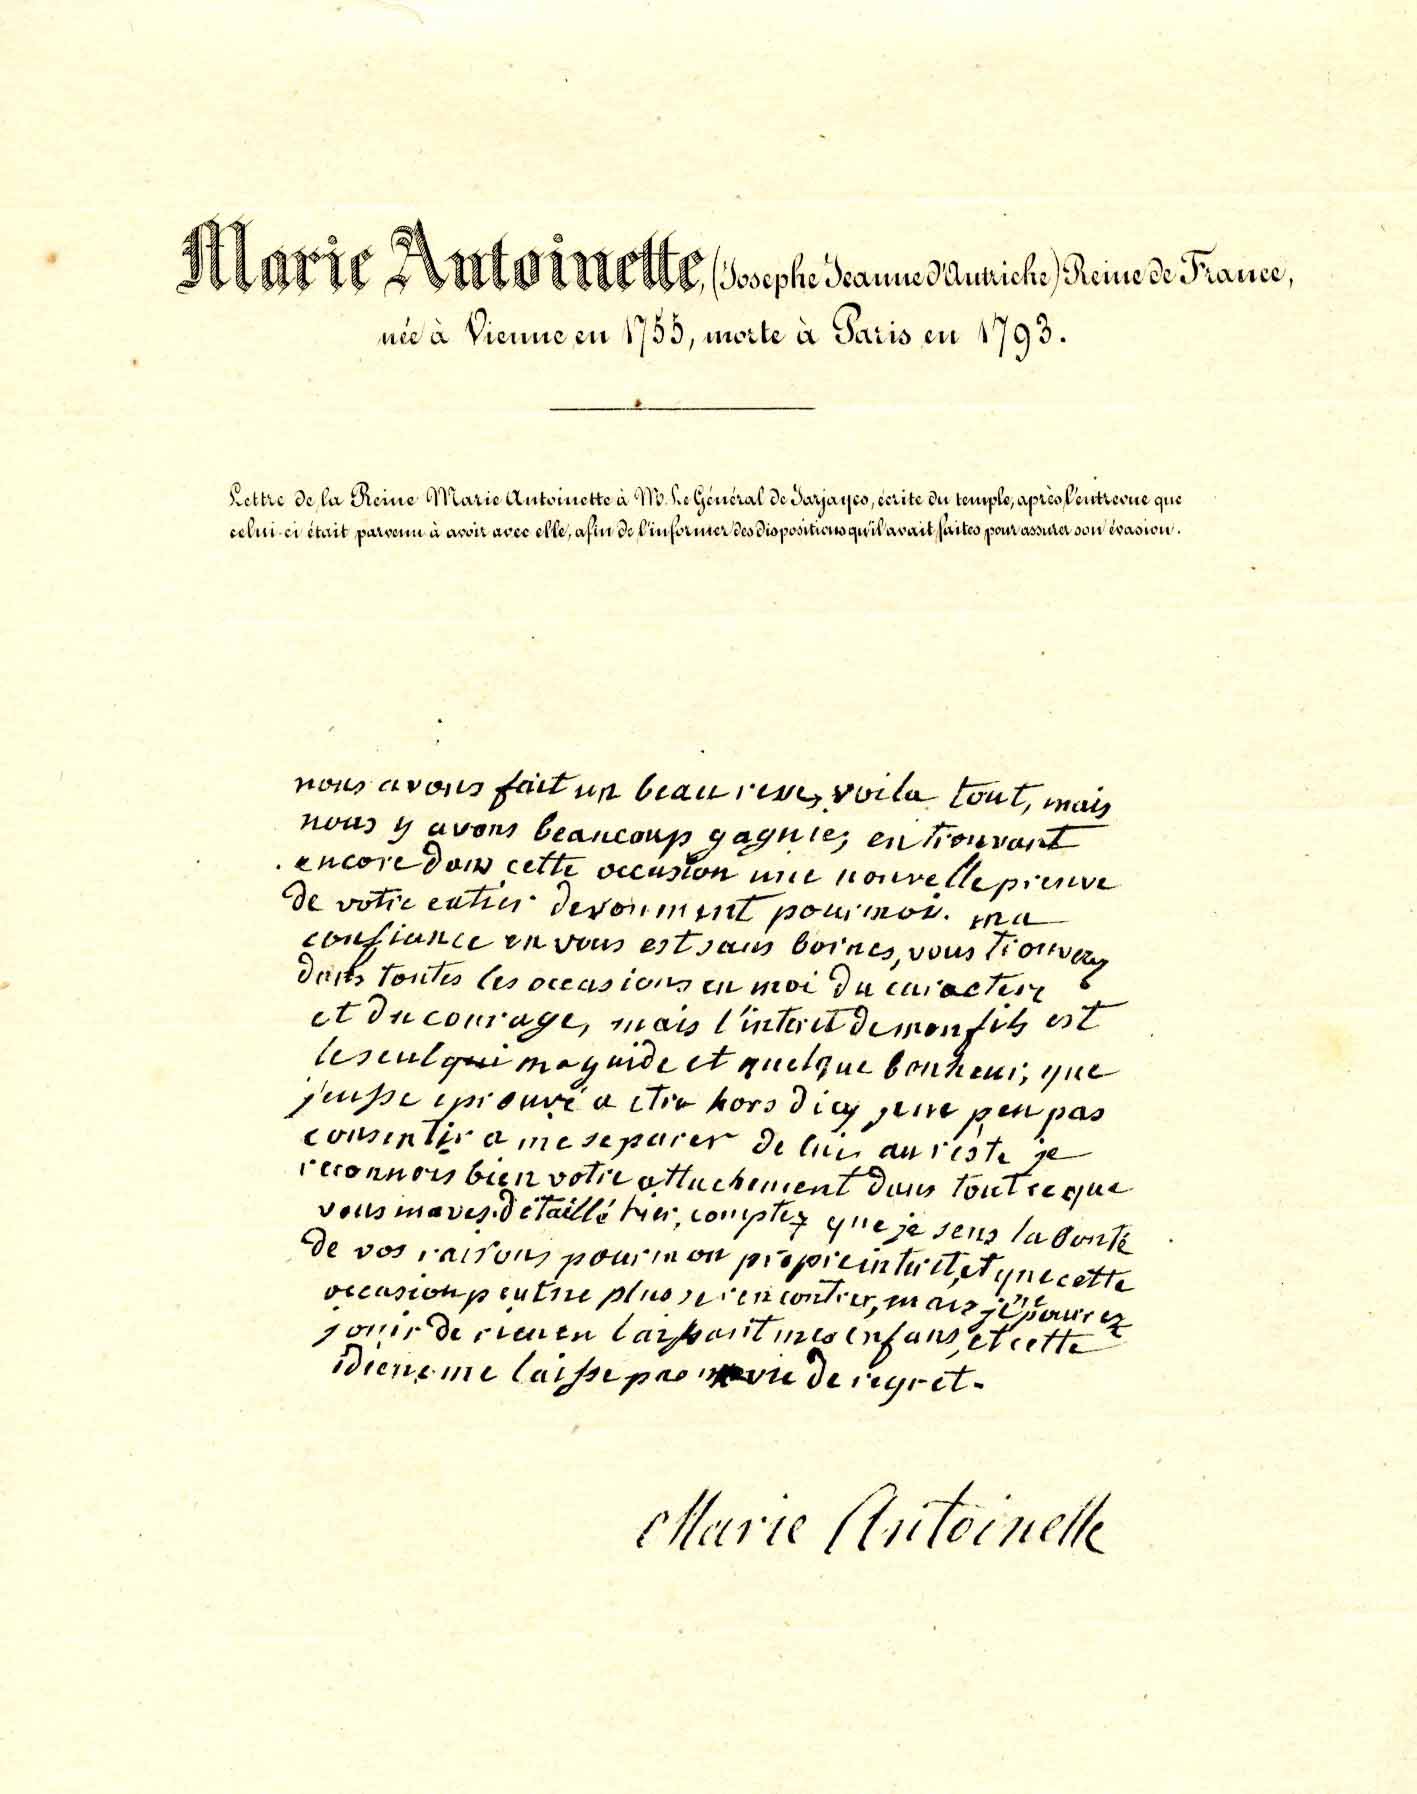 Marie Antoinette, (Josephe Jeanne d'Autriche) Reine de France,
née à Vienne en 1755, morte à Paris en 1793.
Lettre de la Reine Marie Antoinette à M. Le Général de Jarjayes, écrite du temple, après l'entrevue que
celui-ci était parvenu à avoir avec elle, afin de l'informer des dispositions qu'il avait faites pour assurer son évasion.
nous avons fait un beau reve, voila tout, mais
nous y avons beaucoup gagnie, en trouvant
encore dans cette occasion une nouvelle preuve
de votre entier devoument pour moi. ma
confiance en vous est sans bornes, vous trouverez
dans toutes les occasions en moi du caractere
et du courage, mais l'interet de mon fils est
le seul qui me guide et quelque bonheur, que
j'eusse eprouvé a etre hors dicy je ne peu pas
consentir a me separer de lui. au reste je
reconnois bien votre attachement dans tout ce que
vous maves détaillé hier, comptez que je sens la bonté
de vos raisons pour mon propre interet, et que cette
occasion peut ne plus se rencontrer, mais je ne pourrez
jouir de rien en laissant mes enfans, et cette
idiene me laisse pas de regret.
Marie Antoinette